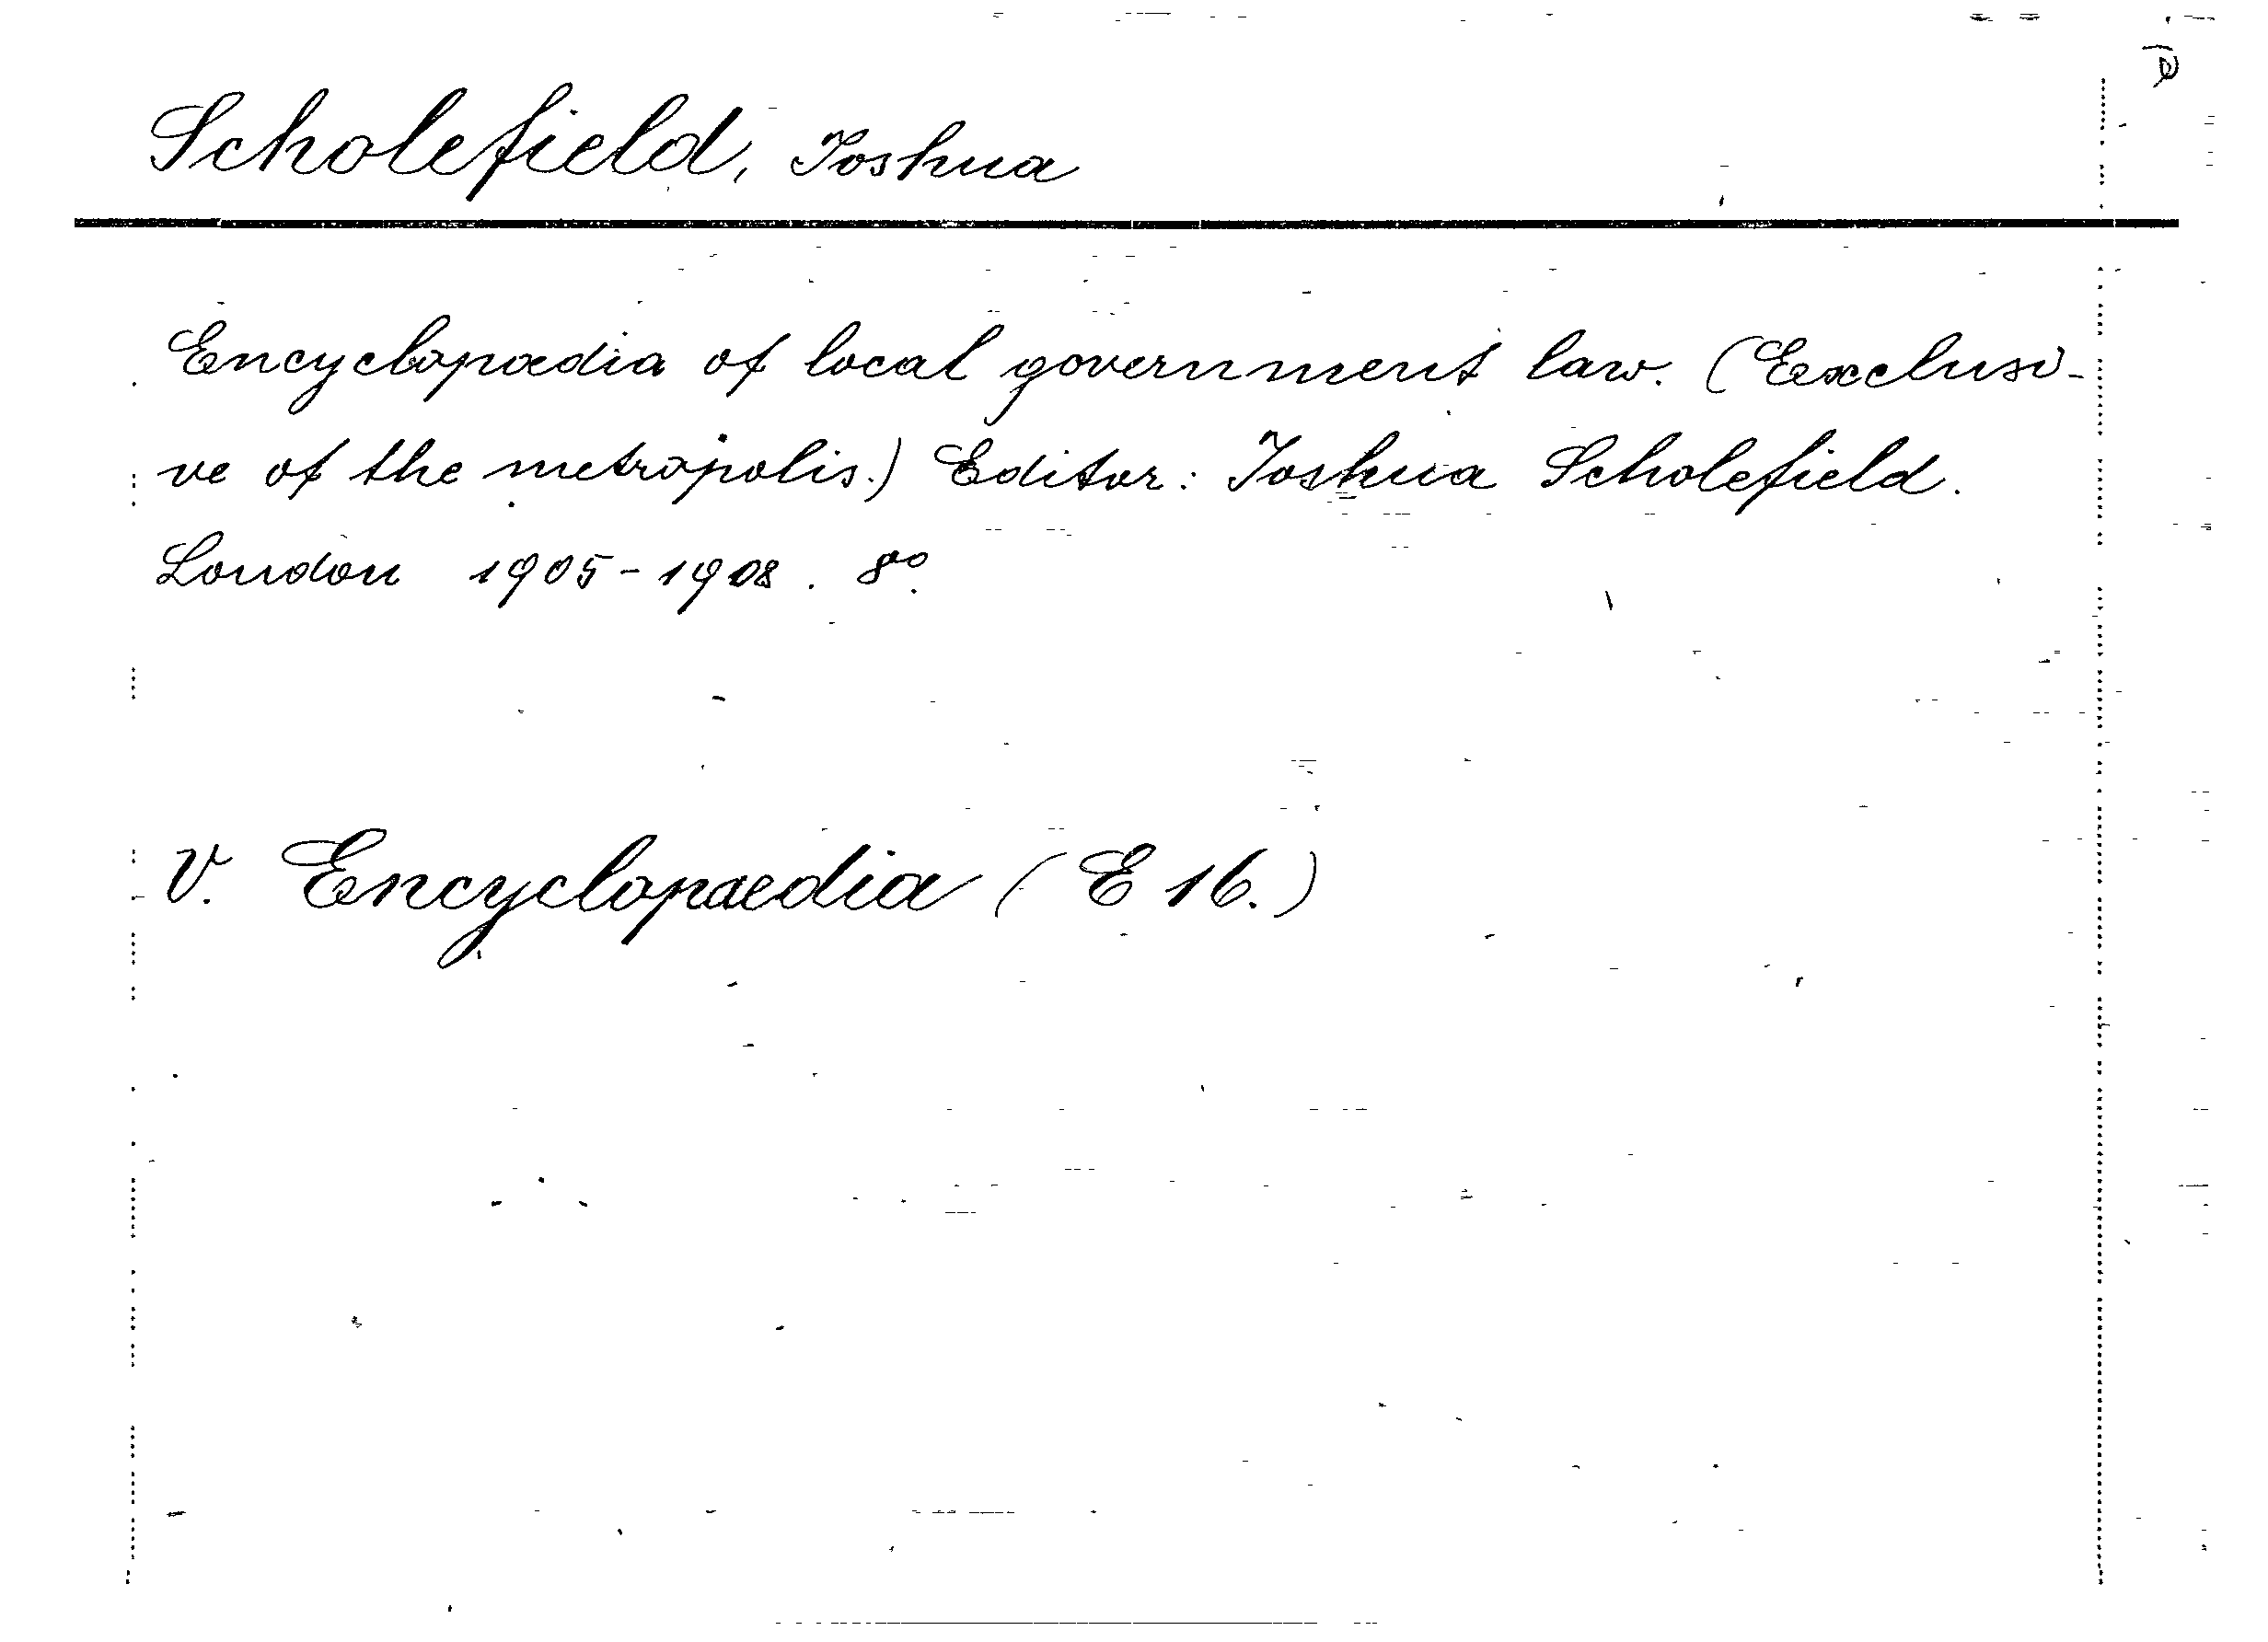 Scholefield, Joshua
Encyclopædia of local government law. (Exclusi-
ve of the metropolis.) Editor: Joshua Scholefield.
London 1905-1908. 8º.
V. Encyclopaedia (E 16.)